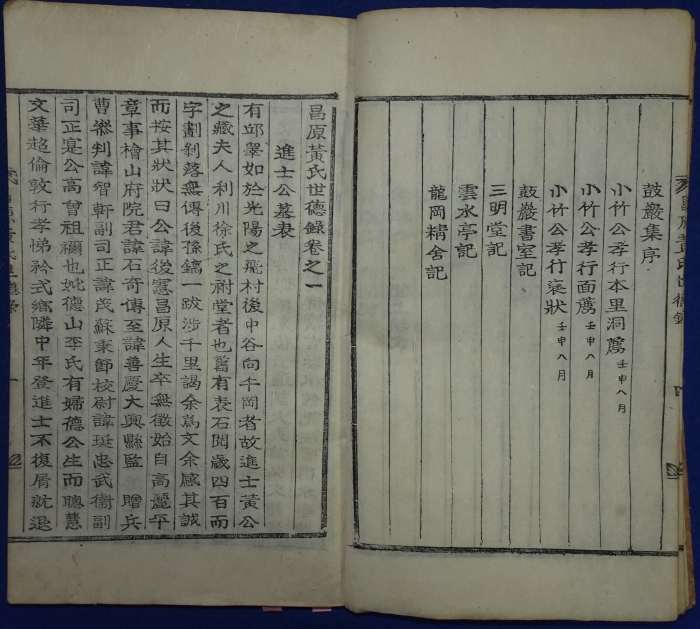 鼓巖集序
小竹公孝行本里洞薦 壬申八月
小竹公孝行面薦 壬申八月
小竹公孝行褒狀 壬申八月
鼓巖書室記
三明堂記
雲水亭記
龍岡精舍記
昌原黃氏世德錄卷之一
進士公墓表
有邱睪如於光陽之飛村後中谷向午岡者故進士黃公
之藏夫人利川徐氏之祔堂者也舊有表石閱歲四百而
字劃剝落無傳後孫鎬一跋涉千里謁余爲文余感其誠
而按其狀狀曰公諱後憲昌原人生卒無徵始自高麗平
章事檜山府院君諱石奇傳至諱善慶大興縣監 贈兵
曹參判諱智軒副司正諱茂蘇秉節校尉諱珽忠武衛副
司正寔公高曾祖禰也妣德山李氏有婦德公生而聰慧
文華超倫敦行孝悌矜式鄕隣中年登進士不復屑就退
昌原黃氏世德錄
一